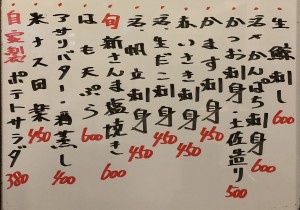 生鯨刺し 600
活〆かんぱち刺身 600
かつお刺身 土佐造り 500
かます刺身 450
赤いさき刺身 450
活〆生だこ刺身 450
活〆帆立刺身 450
旬 新さんま塩焼き 600
はも天ぷら 600
アサリバター・酒蒸し 400
米ナス田楽 450
自家製ポテトサラダ 380